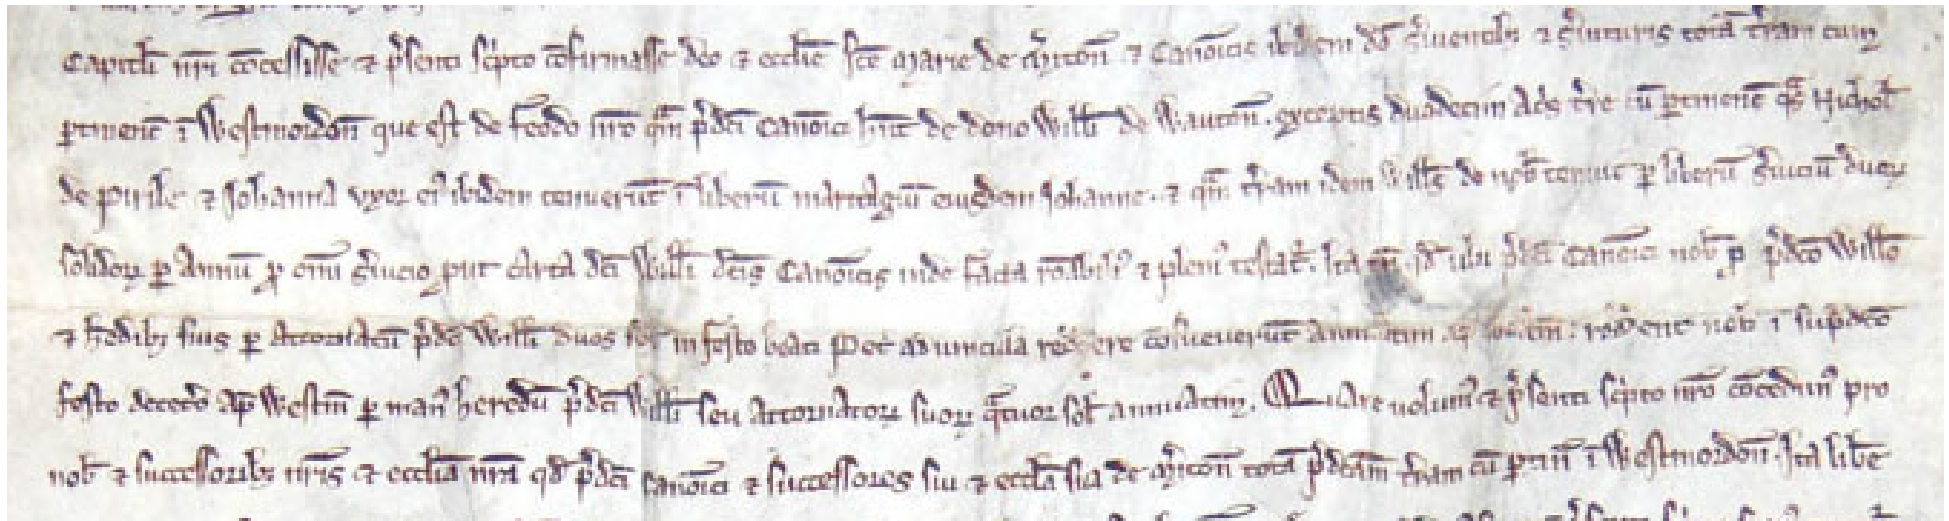 Capitłi nr̄i cōcessisse ⁊ p̄senti sc̄pto cōfirmasse deo ⁊ ecctie sc̄e Marie de M̄iton̄ ⁊ Canōicis ibidem dō s̄uientib; ⁊ s̄uituris totā t̄ram cum
ꝑtinenc̄ ī Westmordon̄ que est de feodo nr̄o qm̄ p̄dc̄i Canōici hn̄t de dono Willi de Wauton̄. exceptis duadecim Ac̄s t̄re cū ꝑtinenc̄ qȝ Nicħol
de Pirile ⁊ Johanna vxor eiꝰ ibidem tenuerūt ī liberū maritagiū eiusdem Johanne. ⁊ qm̄ t̄ram idem Wills de nob̄ tenuit ꝑ liberū s̄uiciū duorꝝ
solidorꝝ ꝑ Annū ꝓ om̄i s̄uicio put carta dc̄i Willi dc̄is Canōicis inde facta rōnabilꝰ ⁊ plenꝰ testat̄. Ita qd̄ ubi p̄dc̄i Canōici nob̄ p̄ p̄dc̄o Willo
⁊ h̄edib; suis ꝑ Attornatū p̄dc̄i Willi duos sol in festo beati Pet̄ Ad uincula reddere cōsueuerūt Annuatim: reddent nob̄ ī sup̄dc̄o
festo decet̄o ap̄ Westm̄ ꝑ manꝰ heredū p̄dc̄i Willi seu Attornatorꝝ suorꝝ q̄tuor sol annuatim. Quare uolumꝰ ⁊ p̄senti sc̄pto nr̄o cōcedimꝰ pro
nob̄ ⁊ successorib; nr̄is ⁊ ecctia nr̄a qd̄ p̄dc̄i Canōici ⁊ successores sui ⁊ ecctia sua de M̄iton̄ totā p̄dc̄am t̄ram cū ꝑtin̄ ī Westmordon̄. Ita libe